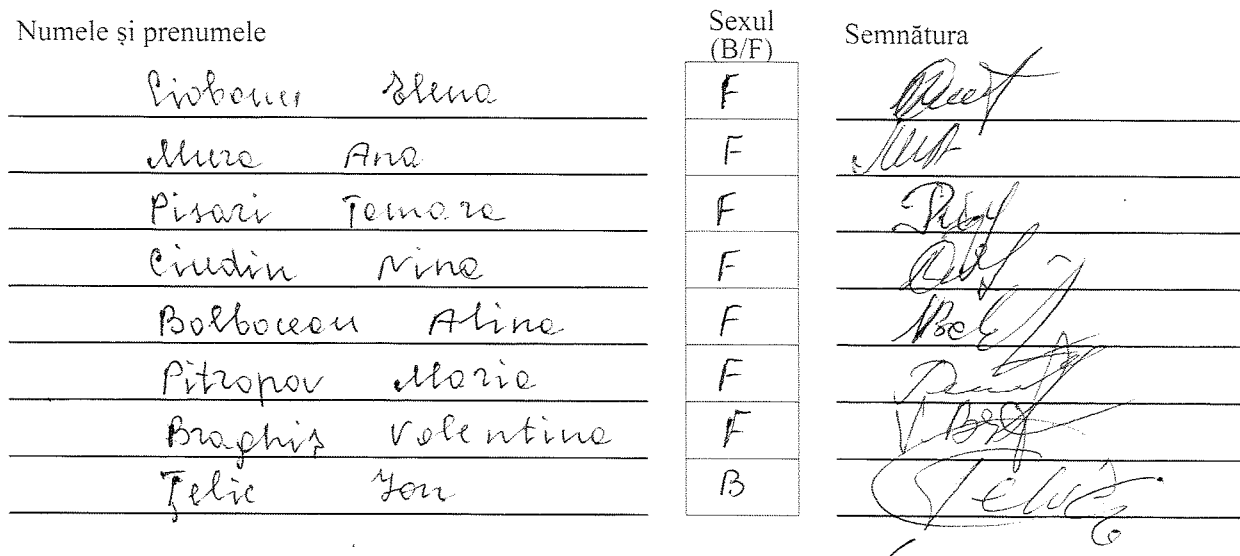 Numele și prenumele Sexul (B/F) Semnătura
Ciobanu Elena F
Mura Ana F
Pisari Tamara F
Ciudin Nina F
Bolbocean Alina F
Pitropov Maria F
Braghiș Valentina F V. Br
Țelic Ion B Țelic